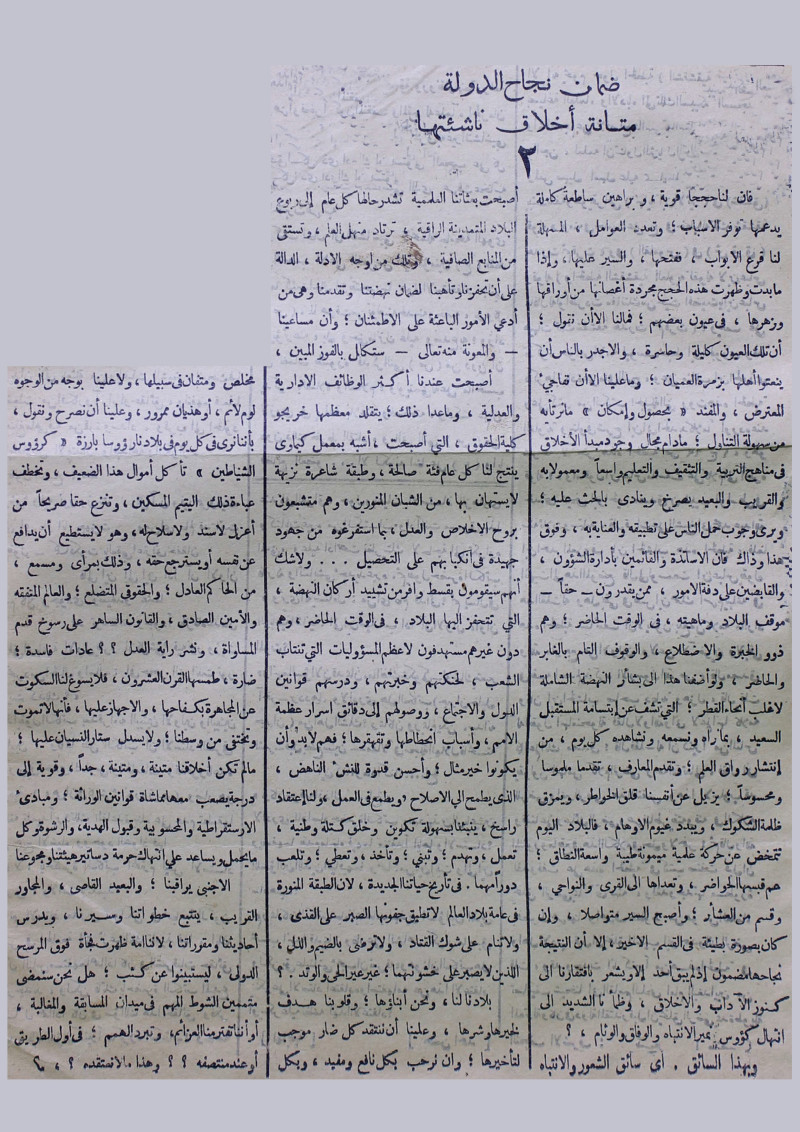 ضمان نجاح الدولة
متانة أخلاق ناشئتها
٢
فان لنا حججا قوية ، وبراهين ساطعة كاملة
يدعمها توفر الاسباب ؛ وتعدد العوامل ، المسهلة
لنا قرع الابواب ، ففتحها ، والسير عليها ، وإذا
مابدت وظهرت هذه الحجج مجردة أغصانها من أوراقها
وزهرها ، فى عيون بعضهم ؛ فمالنا الاأن نقول ؛
أن تلك العيون كليلة وحاسرة ، والاجدر بالناس أن
ينعتوا أهلها بزمرة العميان ؛ وماعلينا الاأن نفاجي ٔ
المعترض ، والمفند « بحصول وإمكان » مانرتأيه
من سهولة التناول ؛ مادام مجال وجود مبدأ الأخلاق
فى مناهج التربية والتثقيف والتعليم واسعاً ومعمولا به
والقريب والبعيد يصرخ وينادى بالحث عليه ؛
ويرى وجوب حمل الناس على تطبيقه والعناية به ، وفوق
هذا وذاك فان الاساتذة والقائمين بأدارة الشؤون ،
والقابضين على دفة الامور ، ممن يقدرون ــ حقاً ــ
موقف البلاد وماهيته ، فى الوقت الحاضر ؛ وهم
ذوو الخبرة والاضطلاع ، والوقوف التام بالغابر
والحاضر ، ولوأضفنا هذا الى بشائر النهضة الشاملة
لاغلب أنحاء القطر ؛ التي تشف عن إبتسامة المستقبل
السعيد ، بما نراه ونسمعه ونشاهده كل يوم ، من
إنتشار رواق العلم ؛ وتقدم المعارف ، تقدما ملموسا
ومحسوسا ؛ يزيل عن أنفسنا قلق الخواطر ، ويمزق
ظلمة الشكوك ، ويبدد غيوم الاوهام ، فالبلاد اليوم
تتمخض عن حركة علمية ميمونة طيبة واسعة النطاق ؛
عم قبسها الحواضر ، وتعداها الى القرى والنواحي ،
وقسم من العشأر ؛ وأصبح السير متواصلا ، وإن
كان بصورة بطيئة فى القسم الاخير ، إلا أن النتيجة
نجاحها مضمون إذلم يبق أحد إلا ويشعر بافتقارنا الى
كنوز الآداب والاخلاق ، وظمأنا الشديد الى
انتهال كؤوس نمير الانتباه والوفاق والوئام ، ؟
وبهذا السائق . أى سائق الشعور والانتباه
أصبحت بعثاتنا العلمية تشد رحالها كل عام إلى ربوع
البلاد المتمدينة الراقية ، ترتاد منهل العلم ، وتستقى
من المنابع الصافية ، وتلك من اوجه الادلة ، الدالة
على أن تحفزنا وتأهبنا لضمان نهضتنا وتقدمنا وهى من
أدعي الأمور الباعثة على الاطمئنان ؛ وأن مساعينا
ــ والمعونة منه تعالى ــ ستكال بالفوز المبين ،
أصبحت عندنا أكثر الوظائف الادارية
والعدلية ، وماعدا ذلك ؛ يتقلد معظمها خريجو
كلية الحقوق ، التي أصبحت ، أشبه بمعمل كيماوى
ينتج لنا كل عام فئة صالحة ، وطبقة شاعرة نزيهة
لايستهان بها ، من الشبان المنورين ، وهم متشبعون
بروح الاخلاص والعدل ، بما استفرغوه من جهود
جهيدة فى انكبابهم على التحصيل . . . ولاشك
أنهم سيقومون بقسط وافر من تشييد أركان النهضة ،
التي تتحفز اليها البلاد ، فى الوقت الحاضر ، وهم
دون غيرهم مستهدفون لأعظم المسؤوليات التي تنتاب
الشعب ، لحنكتهم وخبرتهم ، ودرسهم قوانين
الدول والاجتماع ، ووصولهم إلى دقائق اسرار عظمة
الأمم ، وأسباب انحطاطها وتقهقرها ؛ فهم لابد وأن
يكونوا خير مثال ؛ وأحسن قدوة للنش ٔ الناهض ،
الذى يطمح الى الاصلاح ، ويطمع فى العمل ، ولنا إعتقاد
راسخ ، ينبئنا بسهولة تكوين وخلق كتلة وطنية ،
تعمل ، وتهدم ؛ وتبني ؛ وتأخذ ، وتعطي ؛ وتلعب
دوراً مهما . فى تأريخ حياتنا الجديدة ، لان الطبقة المنورة
فى عامة بلاد العالم لاتطيق جفونها الصبر على القذى ،
ولاتنام على شوك القتاد ، ولاترضى بالضيم والذل ،
اللذين لايصبر على خشونتهما ؛ غير عير الحى والوتد . ؟
بلادنا لنا ، ونحن أبناؤها ؛ وقلوبنا هدف
لخيرها وشرها ، وعلينا أن ننتقد كل ضار موجب
لتأخيرها ؛ وان نرحب بكل نافع ومفيد ، وبكل
مخلص ومتفان فى سبيلها ، ولاعلينا بوجه من الوجوه
لوم لائم ، أوهذيان ممرور ، وعلينا أن نصرح ونقول ،
بأننا نرى فى كل يوم فى بلادنا رؤوسا بارزة « كرؤوس
الشياطين » تأكل أموال هذا الضعيف ، وتخطف
عباءة ذلك اليتيم المسكين ، وتنزع حقا صريحاً من
أعزل لاسند ولاسلاح له ، وهو لايستطيع أن يدافع
عن نفسه أو يسترجع حقه ، وذلك بمرأى ومسمع ،
من الحاكم العادل ؛ والحقوقي المتضلع ؛ والعالم المتفقه
والأمين الصادق ، والقانون الساهر على رسوخ قدم
المساواة ، ونشر راية العدل ؟ ؟ عادات فاسدة ؛
ضارة ، طمسها القرن العشرون ، فلا يسوغ لنا السكوت
عن المجاهرة بكفاحها ، والاجهاز عليها ، فأنها لاتموت
وتختفى من وسطنا ؛ ولايسدل ستار النسيان عليها ؛
مالم تكن أخلاقنا متينة ، ومتينة ، جداً ، وقوية إلى
درجة يصعب معها مماشاة قوانين الوراثة ؛ ومبادى ٔ
الارستقراطية والمحسوبية وقبول الهدية ، والرشوة وكل
مايحمل ويساعد علي انتهاك حرمة دساتير هيئتنا ومجموعنا
الاجنبي يراقبنا ؛ والبعيد القاصى ، والمجاور
القريب ، يتتبع خطواتنا وسيرنا ، ويدرس
أحاديثنا ومقرراتنا ، لاننا امة ظهرت فجأة فوق المرسح
الدولى ، ليستبينوا عن كثب ؛ هل نحن سنمضى
متممين الشوط المهم فى ميدان المسابقة والمغالبة ،
أو أننا تفتر منا العزائم ، وتبرد الهمم ؛ فى أول الطريق
أوعند منتصفه ؟ ؟ وهذا مالانعتقده ؟ ،